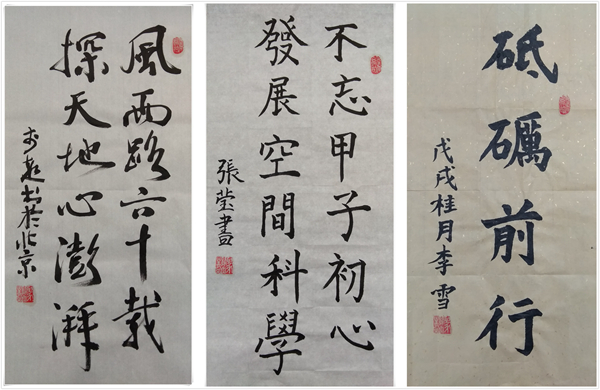 風雨路六十載
探天地心澎湃
超书於北京
不忘甲子初心
發展空間科學
張莹書
砥礪前行
戊戌桂月李雪